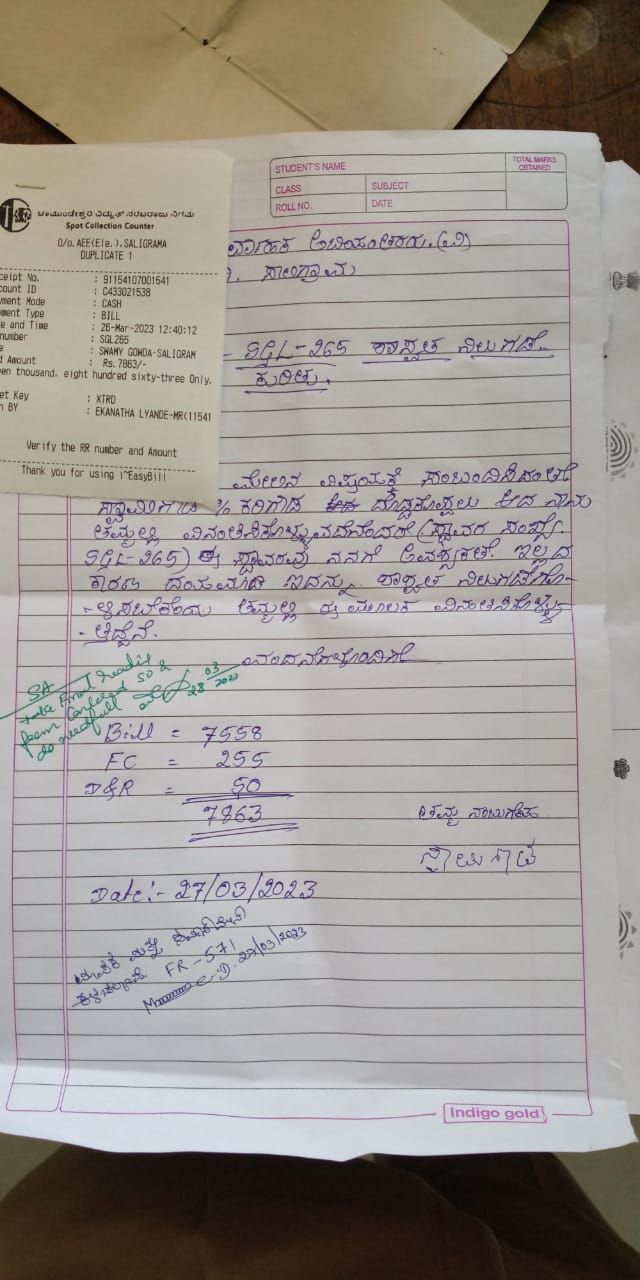 STUDENT'S NAME
TOTAL MARKS OBTAINED
CLASS
SUBJECT
ROLL NO.
DATE
ಚಾಮುಂಡೇಶ್ವರಿ ವಿದ್ಯುತ್ ಸರಬರಾಜು ನಿಗಮ
Spot Collection Counter
O/o. AEE(Ele.),SALIGRAMA
DUPLICATE 1
ceipt No. : 91154107001541
count ID : C433021538
yment Mode : CASH
yment Type : BILL
te and Time : 26-Mar-2023 12:40:12
number : SGL265
e : SWAMY GOWDA-SALIGRAM
d Amount : Rs.7863/-
en thousand, eight hundred sixty-three Only.
et Key : XTRD
n BY : EKANATHA LYANDE-MR(11541
Verify the RR number and Amount
Thank you for using i~EasyBill
ಸಾಲಿಗ್ರಾಮ
- SGL-265 ಶಾಶ್ವತ ನಿಲುಗಡೆ
ಕುರಿತು.
ಮೇಲಿನ ವಿಷಯಕ್ಕೆ ಸಂಬಂದಿಸಿದಂತೆ
ಸ್ವಾಮಿಗೌಡ % ಕರಿಗೌಡ ಆದ ನಾನು
ತಮ್ಮಲ್ಲಿ ವಿನಂತಿಸಿಕೊಳ್ಳುವದೆನೆಂದರೆ (ಸ್ಥಾವರ ಸಂಖ್ಯೆ.
SGL-265) ಈ ಸ್ಥಾವರವು ನನಗೆ ಅವಶ್ಯಕತೆ ಇಲ್ಲದ
ಕಾರಣ ದಯಮಾಡಿ ಇದನ್ನು ಶಾಶ್ವತ ನಿಲುಗಡೆಗೊ-
ತಮ್ಮಲ್ಲಿ ಈ ಮೂಲಕ ವಿನಂತಿಸಿಕೊಳ್ಳು
- ತಿದ್ದೆನೆ.
ವಂದನೆಗಳೊಂದಿಗೆ
SA
take Final reading
28 03 2023
Bill = 7558
FC = 255
D&R = 50
7863
ತಮ್ಮ ನಂಬುಗೆಯ
ಸ್ವಾಮಿಗೌಡ
Date:- 27/03/2023
FR-571
D. 27/03/2023
Indigo gold